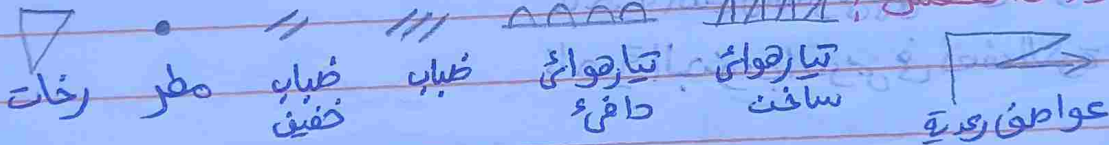 عواصف رعدية تيار هوائى ساخن تيار هوائى دافئ ضباب ضباب خفيف مطر رخات